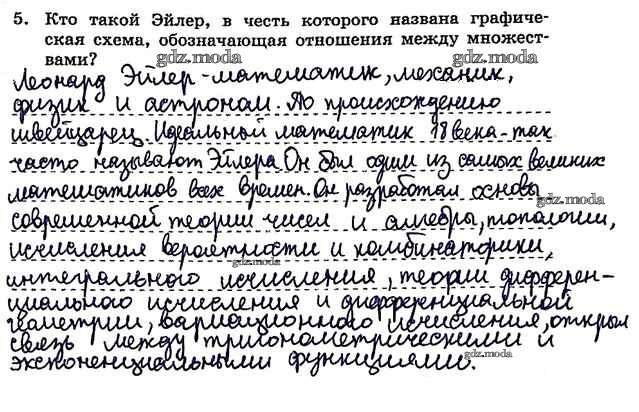 5. Кто такой Эйлер, в честь которого названа графиче-
ская схема, обозначающая отношения между множест-
вами?
gdz.moda
gdz.moda
Леонард Эйлер-математик, механик,
физик и астроном. По происхождению
швейцарец. Идеальный математик 18 века-так
часто называют Эйлера. Он был одим из самых великих
математиков всех времен. Он разработал основы
gdz.moda
современной теории чисел и алгебры, топологии,
исчисления вероятности и комбинаторики,
gdz.moda
интегрального исчисления, теории дифферен-
циального исчисления и дифференциальной
геометрии, вариационного исчисления, открыл
связь между тригонометрическими и
экспоненциальными функциями.
gdz.moda